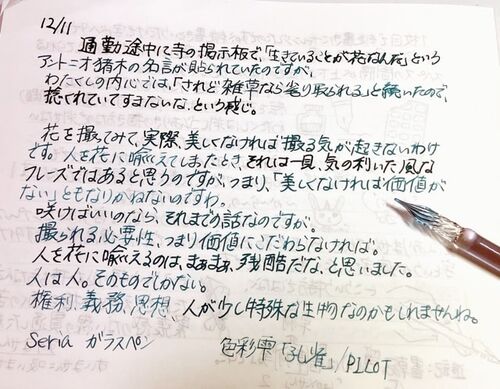 12/11
通勤途中に寺の掲示板で、「生きていることが花なんだ」という
アントニオ猪木の名言が貼られていたのですが、
わたくしの内心では、「されど雑草なら毟り取られる」と続いたので、
捻くれていてすまないな、という感じ。
花を撮ってみて、実際、美しくなければ撮る気が起きないわけ
です。人を花に喩えてしまったとき、それは一見、気の利いた風な
フレーズではあると思うのですが、つまり、「美しくなければ価値が
ない」ともなりかねないのですわ。
咲けばいいのなら、それまでの話なのですが。
撮られる必要性、つまり価値にこだわらなければ。
人を花に喩えるのは、まぁまぁ、残酷だな、と思いました。
人は人。そのものでしかない。
権利、義務、思想、人が少し特殊な生物なのかもしれませんね。
Seria ガラスペン
色彩雫「孔雀」/PILOT